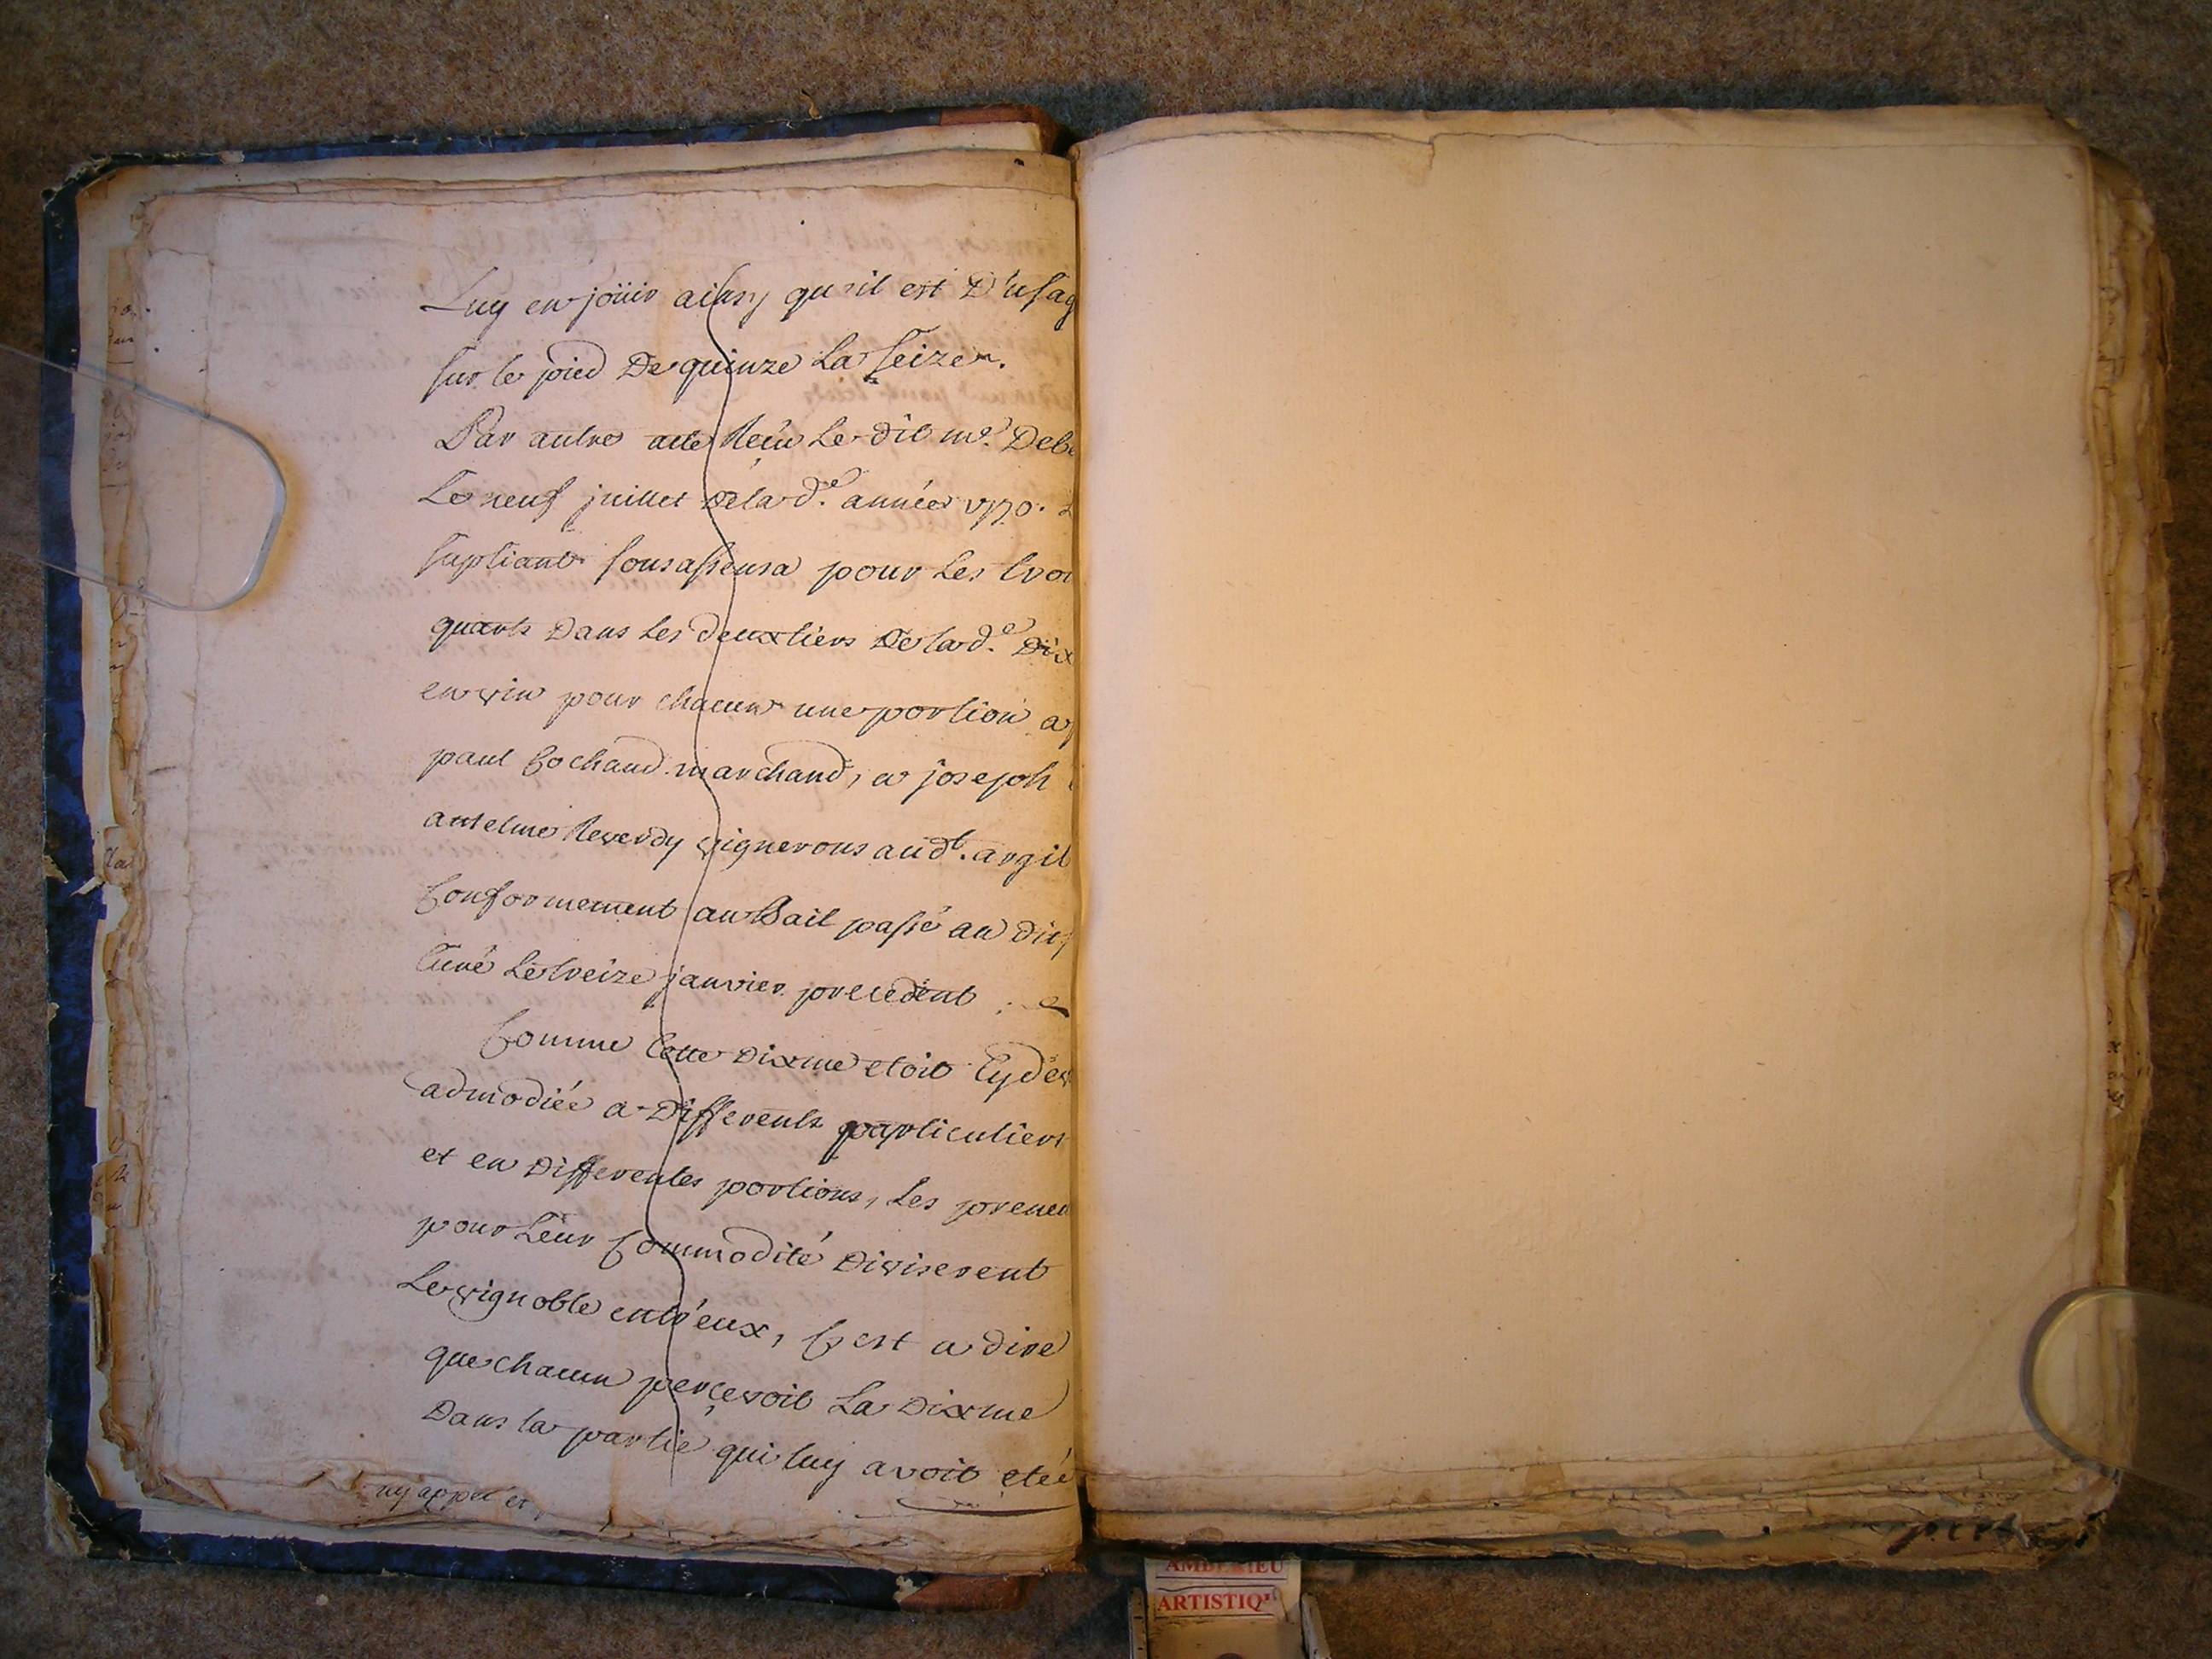 Luy en joüir ainsy qu'il est D'usag
sur le pied De quinze La seizen.
Par autre acte Reçu Le dit me. Deb
Le neuf juillet De la de. année 1770.
supliant sousassensa pour Les troi
quarts Dans Les deux tiers De la de. Dix
en vin pour chacun une portion a
paul Cochaud marchand, a joseph
anselme Reverdy vignerons aud t. argil
Conformement au Bail passé au dit
Curé Le treize janvier precedent ; e
Comme Cette Dixme etoit Cy dev
admodiée a Differents particuliers
et en Differentes portions, Les preneu
pour Leur Commodité Diviserent
Le vignoble entr'eux, C'est a dire
que chacun perçevoit La Dixme
Dans la partie qui luy avoit eteé
ny appel et
AMBERIEU
ARTISTIQU